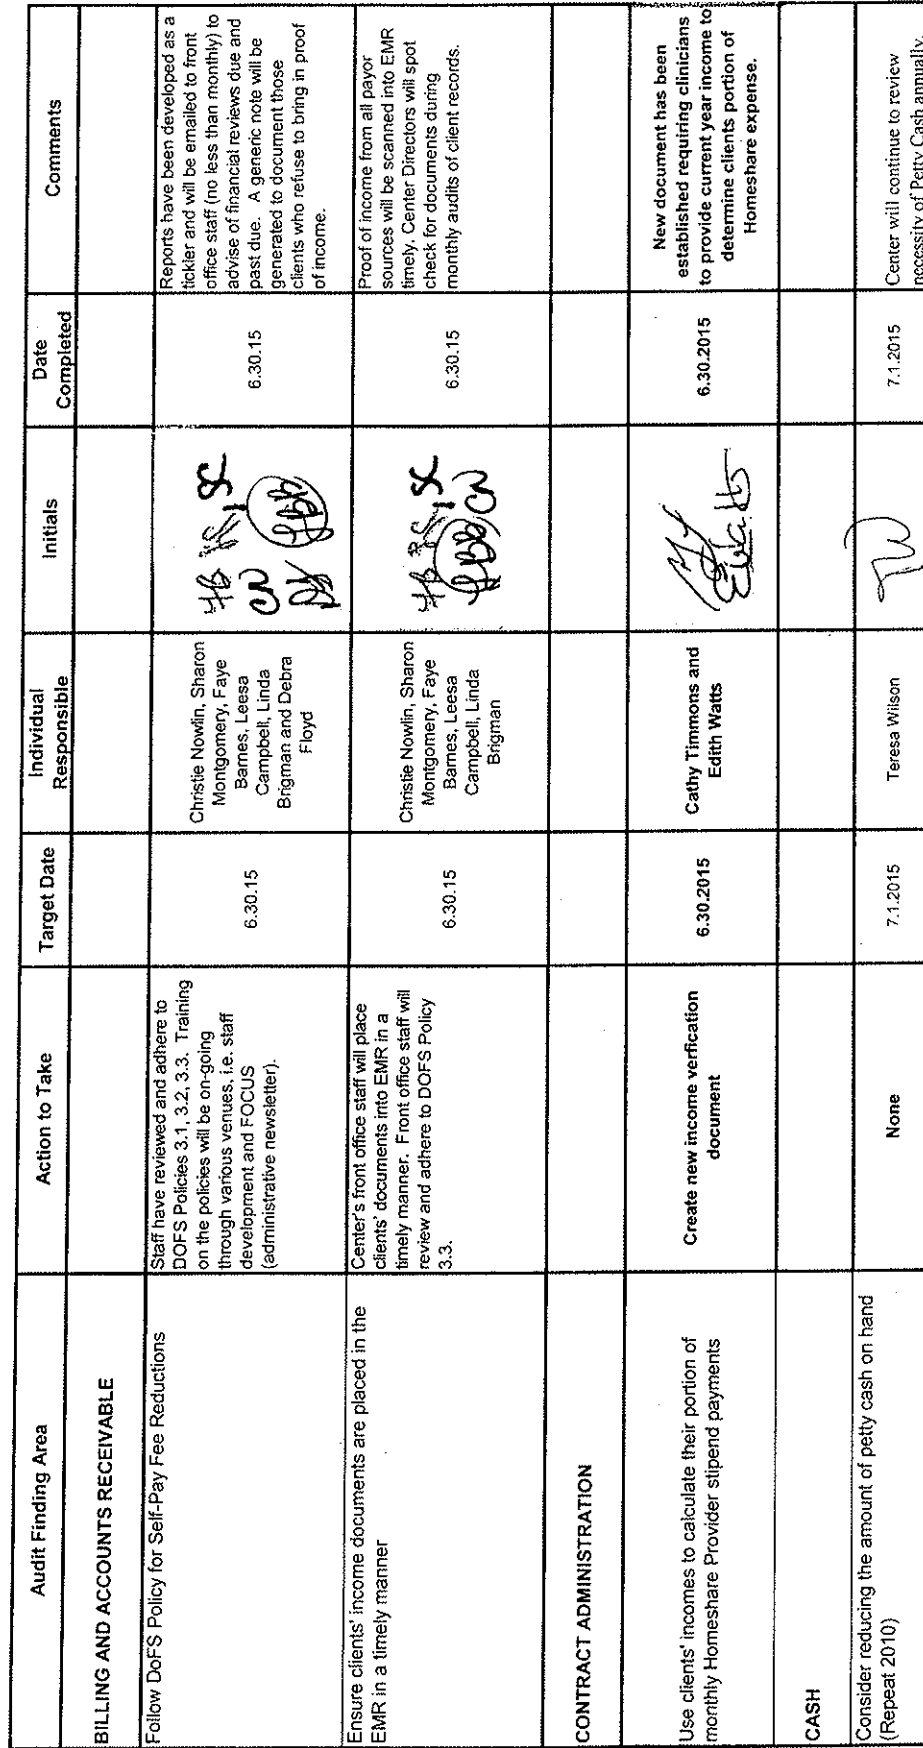 Audit Finding Area
Action to Take
Target Date
Individual
Responsible
Initials
Date
Completed
Comments
BILLING AND ACCOUNTS RECEIVABLE
Follow DoFS Policy for Self-Pay Fee Reductions
Staff have reviewed and adhere to
DOFS Policies 3.1, 3.2, 3.3. Training
on the policies will be on-going
through various venues, i.e. staff
development and FOCUS
(administrative newsletter).
6.30.15
Christie Nowlin, Sharon
Montgomery, Faye
Barnes, Leesa
Campbell, Linda
Brigman and Debra
Floyd
6.30.15
Reports have been developed as a
tickler and will be emailed to front
office staff (no less than monthly) to
advise of financial reviews due and
past due. A generic note will be
generated to document those
clients who refuse to bring in proof
of income.
Ensure clients' income documents are placed in the
EMR in a timely manner
Center's front office staff will place
clients' documents into EMR in a
timely manner. Front office staff will
review and adhere to DOFS Policy
3.3.
6.30.15
Christie Nowlin, Sharon
Montgomery, Faye
Barnes, Leesa
Campbell, Linda
Brigman
6.30.15
Proof of income from all payor
sources will be scanned into EMR
timely. Center Directors will spot
check for documents during
monthly audits of client records.
CONTRACT ADMINISTRATION
Use clients' incomes to calculate their portion of
monthly Homeshare Provider stipend payments
Create new income verfication
document
6.30.2015
Cathy Timmons and
Edith Watts
6.30.2015
New document has been
established requiring clinicians
to provide current year income to
determine clients portion of
Homeshare expense.
CASH
Consider reducing the amount of petty cash on hand
(Repeat 2010)
None
7.1.2015
Teresa Wilson
TW
7.1.2015
Center will continue to review
necessity of Petty Cash annually.